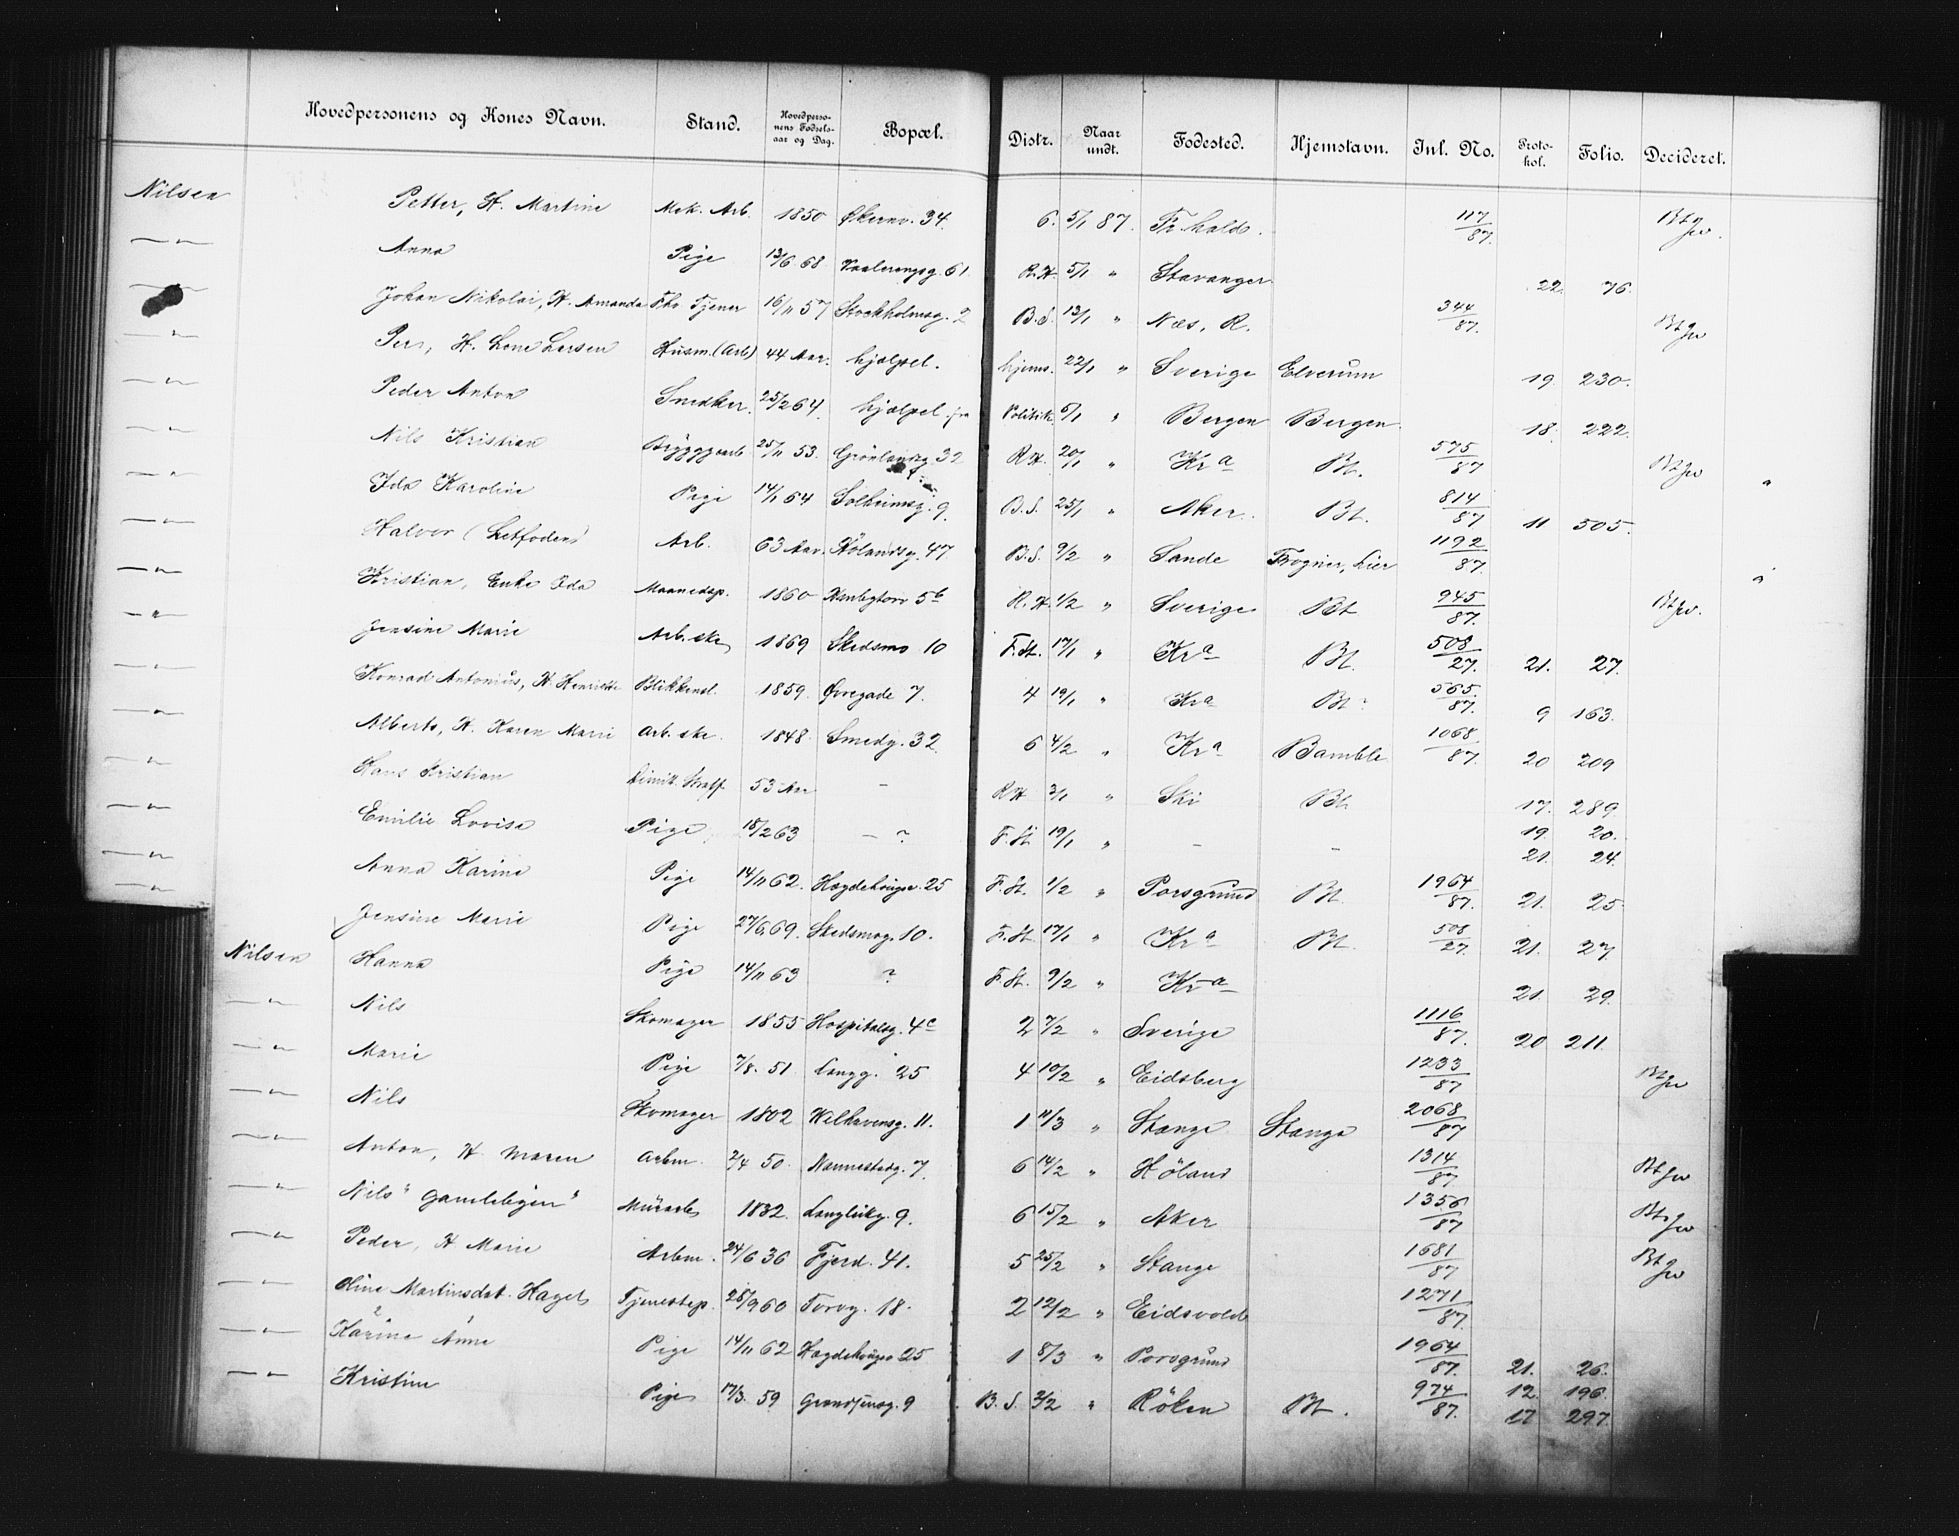 Hovedpersonens og Kones Navn. Stand. Hovedpersonens Fødselsaar og Dag. Bopæl. Distr. Naar undt. Fødested. Hjemstavn. Inl. No. Protokol. Folio. Decideret.
Nilsen Petter, H. Martine Mek. Arb. 1850 Økernv. 34. 6. 5/1 87. Fr.hald. 117/87. Bt
—"— Anna Pige 13/6 68 Vaalerengsg. 61 R.H. 5/1 " Stavanger 22. 76.
—"— Johan Nikolai, H. Amanda Fhv Tjener 16/11 57 Stockholmsg. 2 B.S. 13/1 " Næs, R. 344/87. Bt
—"— Per, H. Lene Larsen Husm. (Arb) 44 Aar. hjælpel. hjems. 22/1 " Sverige Elverum 19. 230.
—"— Peder Anton Snedker. 25/2 64. hjælpel. fra Politik. 5/1 " Bergen Bergen. 18. 222.
—"— Nils Kristian Bryggearb 25/11 53. Grønlandsg 32 R.H. 20/1 " Kra Bt. 575/87 Bt
—"— Ida Karoline Pige 14/1 64 Solheimsg. 9. B.S. 25/1 " Aker. Bt. 814/87 11 505.
—"— Halvor (Letfoden) Arb. 63 Aar. Hølandsg. 47 B.S. 9/2 " Sande Frogner, Lier 1192/87.
—"— Kristian, Enke Ida Maanedsp. 1860 5b R.H. 1/2 " Sverige Bt 945/87. Bt
—"— Jensine Marie Arb.ske 1869 Skedsmo 10 F.St. 17/1 " Kra Bt. 508/27. 21. 27.
—"— Konrad Antonius, H Henriette Blikkensl. 1859. Øvregade 7. 4 19/1 " Kra Bt. 565./87. 9 163.
—"— Alberts, H. Karen Marie Arb. ske. 1848. Smedg. 32. 6 4/2 " Kra Bamble. 1068/87. 20 209
—"— Hans Kristian Dimitt. Straff. 53 Aar — R.H 3/1 " Ski Bt 17. 289.
—"— Emilie Lovisa Pige 18/2 63 — ? F.St 19/1 " — — 19. 20.
21. 24.
—"— Anna Karine Pige 14/11 62. Hægdehougsv. 25 F.St. 1/2 " Porsgrund Bt. 1964/87. 21. 25
—"— Jensine Marie Pige 27/6 69. Skedsmog. 10. F.St. 17/1 " Kra Bt. 508/27. 21. 27.
Nilsen Hanna Pige 14/11 63 ? F.St. 9/2 " Kra 21. 29.
—"— Nils Skomager 1855 Hospitalsg. 4c 2 7/2 " Sverige 1116/87. 20 211.
—"— Marie Pige 7/8. 51 Langg. 25 4 10/2 " Eidsberg 1233/87 Bt
—"— Nils Skomager 1802 Welhavensg. 11. 1 11/3 " Stange Stange 2068/87
—"— Anton, H Maren Arbm. 2/4 50. Nannestadg. 7. 6 14/2 " Høland 1314/87 Bt
—"— Nils "Gamlebyen" Murarb 1832. Langlukg. 9. 6 15/2 " Aker 1356/87 Bt
—"— Peder, H Marie Arbm. 24/6 36 Fjerd. 41. 5 25/2 " Stange 1681/87 Bt
—"— Oline Martinsdat. Hagel Tjenestep. 28/9 60 Torvg. 18. 2 12/2 " Eidsvold 1271/87.
—"— Karine Anne Pige 14/11 62 Hægdehougsv 25 1 8/3 " Porsgrund 1964/87. 21. 26.
—"— Kristine Pige 17/3. 59 Grændsing. 9 B.S. 2/2 " Røken Bt. 974/87. 12. 196.
17 297.